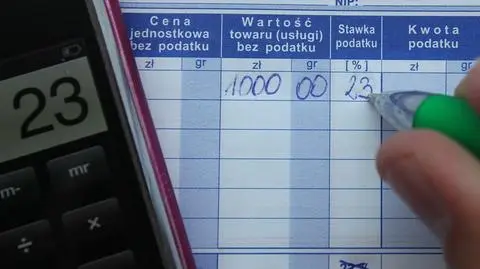 NIP:
Cena jednostkowa bez podatku
Wartość towaru (usługi) bez podatku
Stawka podatku
Kwota podatku
zł gr zł gr [%] zł
1000 00 23
23
mr-
m
÷
×